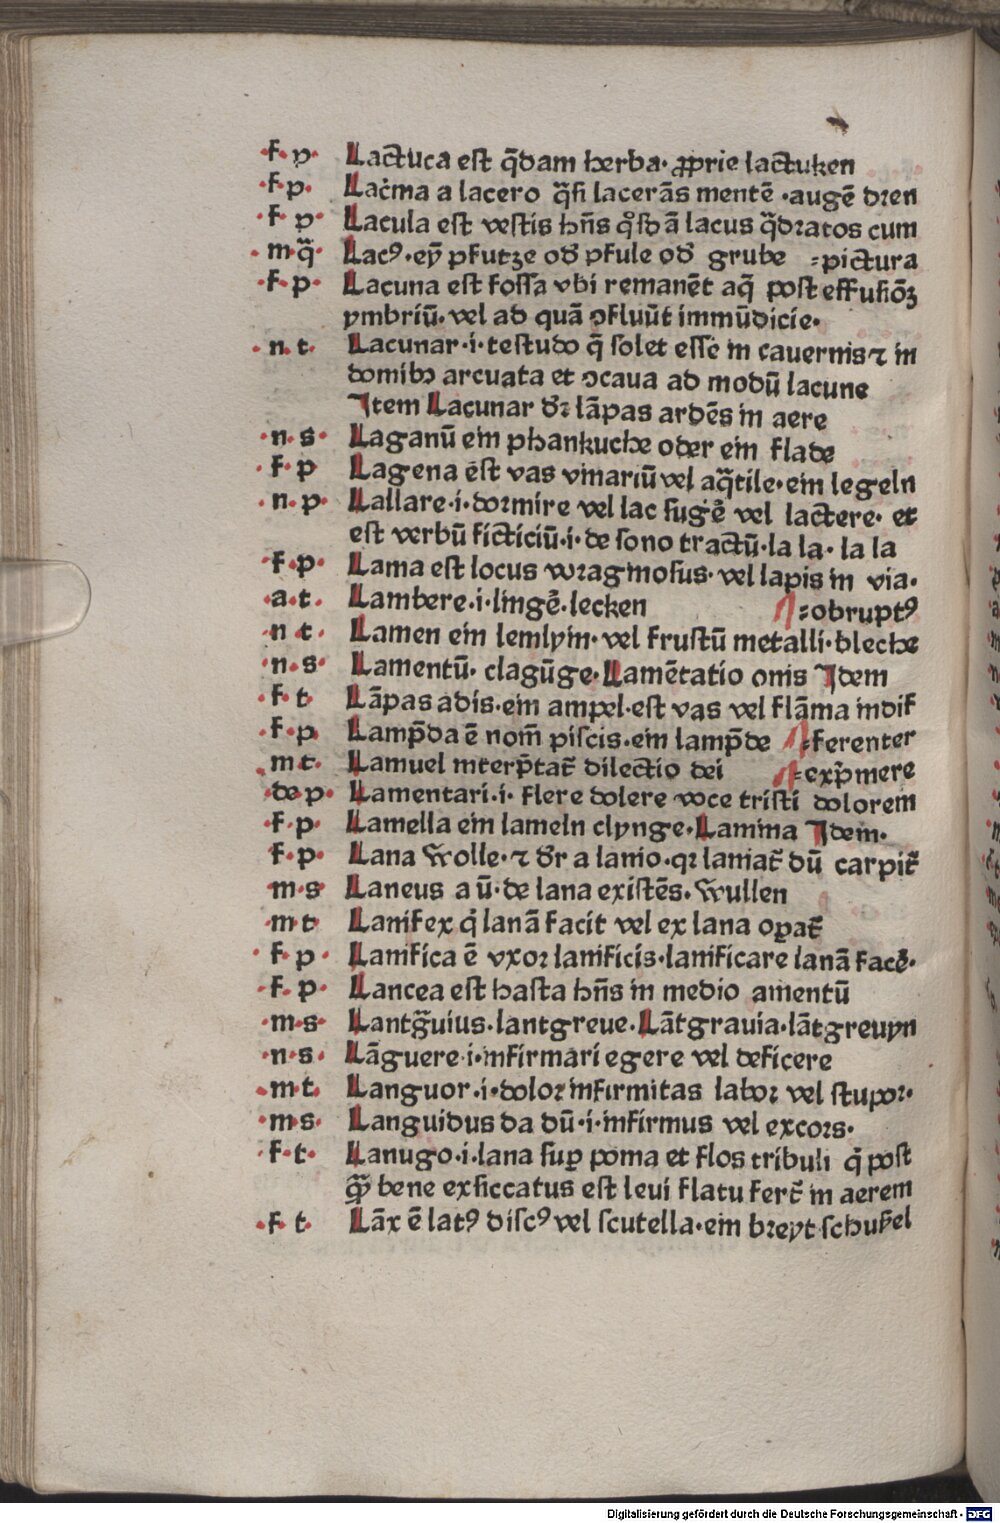 ·f·p· Lactuca est q̄dam herba· ꝓprie lactuken
·f·p· Lac̓ma a lacero q̄si lacerās mentē ·augē dren
·f·p· Lacula est vestis hn̄s q̊sdā lacus q̄dratos cum
·m·q̄· Lacꝰ·eÿ pfutze od̓ pfule od̓ grube ⸗pictura
·f·p· Lacuna est fossa vbi remanēt aq̄ post effusiōꝫ
ymbriū· vel ad quā ꝯfluūt immūdicie·
·n·t· Lacunar·i·testudo q̄ solet esse in cavernis ⁊ in
domibꝰ arcuata et ꝯcaua ad modū lacune
Item Lacunar d̓r lāpas ardēs in aere
·n·s· Laganū ein phankuche oder ein flade
·f·p Lagena est vas vinariū vel aq̄tile·ein legeln
·n·p· Lallare·i·dormire vel lac sugē vel lactere· et
est verbū ficticiū·i·de sono tractū·la la· la la
·f·p· Lama est locus voragmosus· vel lapis in via·
·a·t· Lambere·i·lingē·lecken ⸗obruptꝰ
·n t· Lamen ein lemlyin· vel frustū metalli·bleche
·n·s· Lamentū· clagūge·Lamētatio onis Idem
·f·t Lāpas adis·ein ampel·est vas vel flāma indif
·f·p· Lamp̄da ē nom̄ piscis·ein lamp̄de ⸗ferenter
·m t· Lamuel interp̄tat̄ dilectio dei ⸗exp̄mere
·de p· Lamentari·i· flere dolere voce tristi dolorem
·f·p· Lamella ein lameln clynge·Lamina Idem·
·f·p· Lana Wolle·⁊ d̓r a lanio·qꝛ laniat̄ dū carpit̄
·m·s Laneus a ū·de lana existēs· Wullen
·m t Lanifex q̇ lanā facit vel ex lana oꝑat̄
·f·p· Lanifica ē vxor lanificis·lanificare lanā facē·
·f·p· Lancea est hasta hn̄s in medio amentū
·m·s· Lantg̃uius·lantgreue·Lātgrauia·lātgreuyn
·n·s· Lāguere·i·infirmari egere vel deficere
·m t· Languor·i·dolor infirmitas labor vel stupor·
·m·s· Languidus da dū·i·infirmus vel excors·
·f·t· Lanugo·i·lana suꝑ poma et flos tribuli q̄ post
q̄ꝫ bene exsiccatus est leui flatu fert̄ in aerem
·f t· Lāx ē latꝰ discꝰ vel scutella·ein breyt schußel
Digitalisierung gefördert durch die Deutsche Forschungsgemeinschaft - DFG